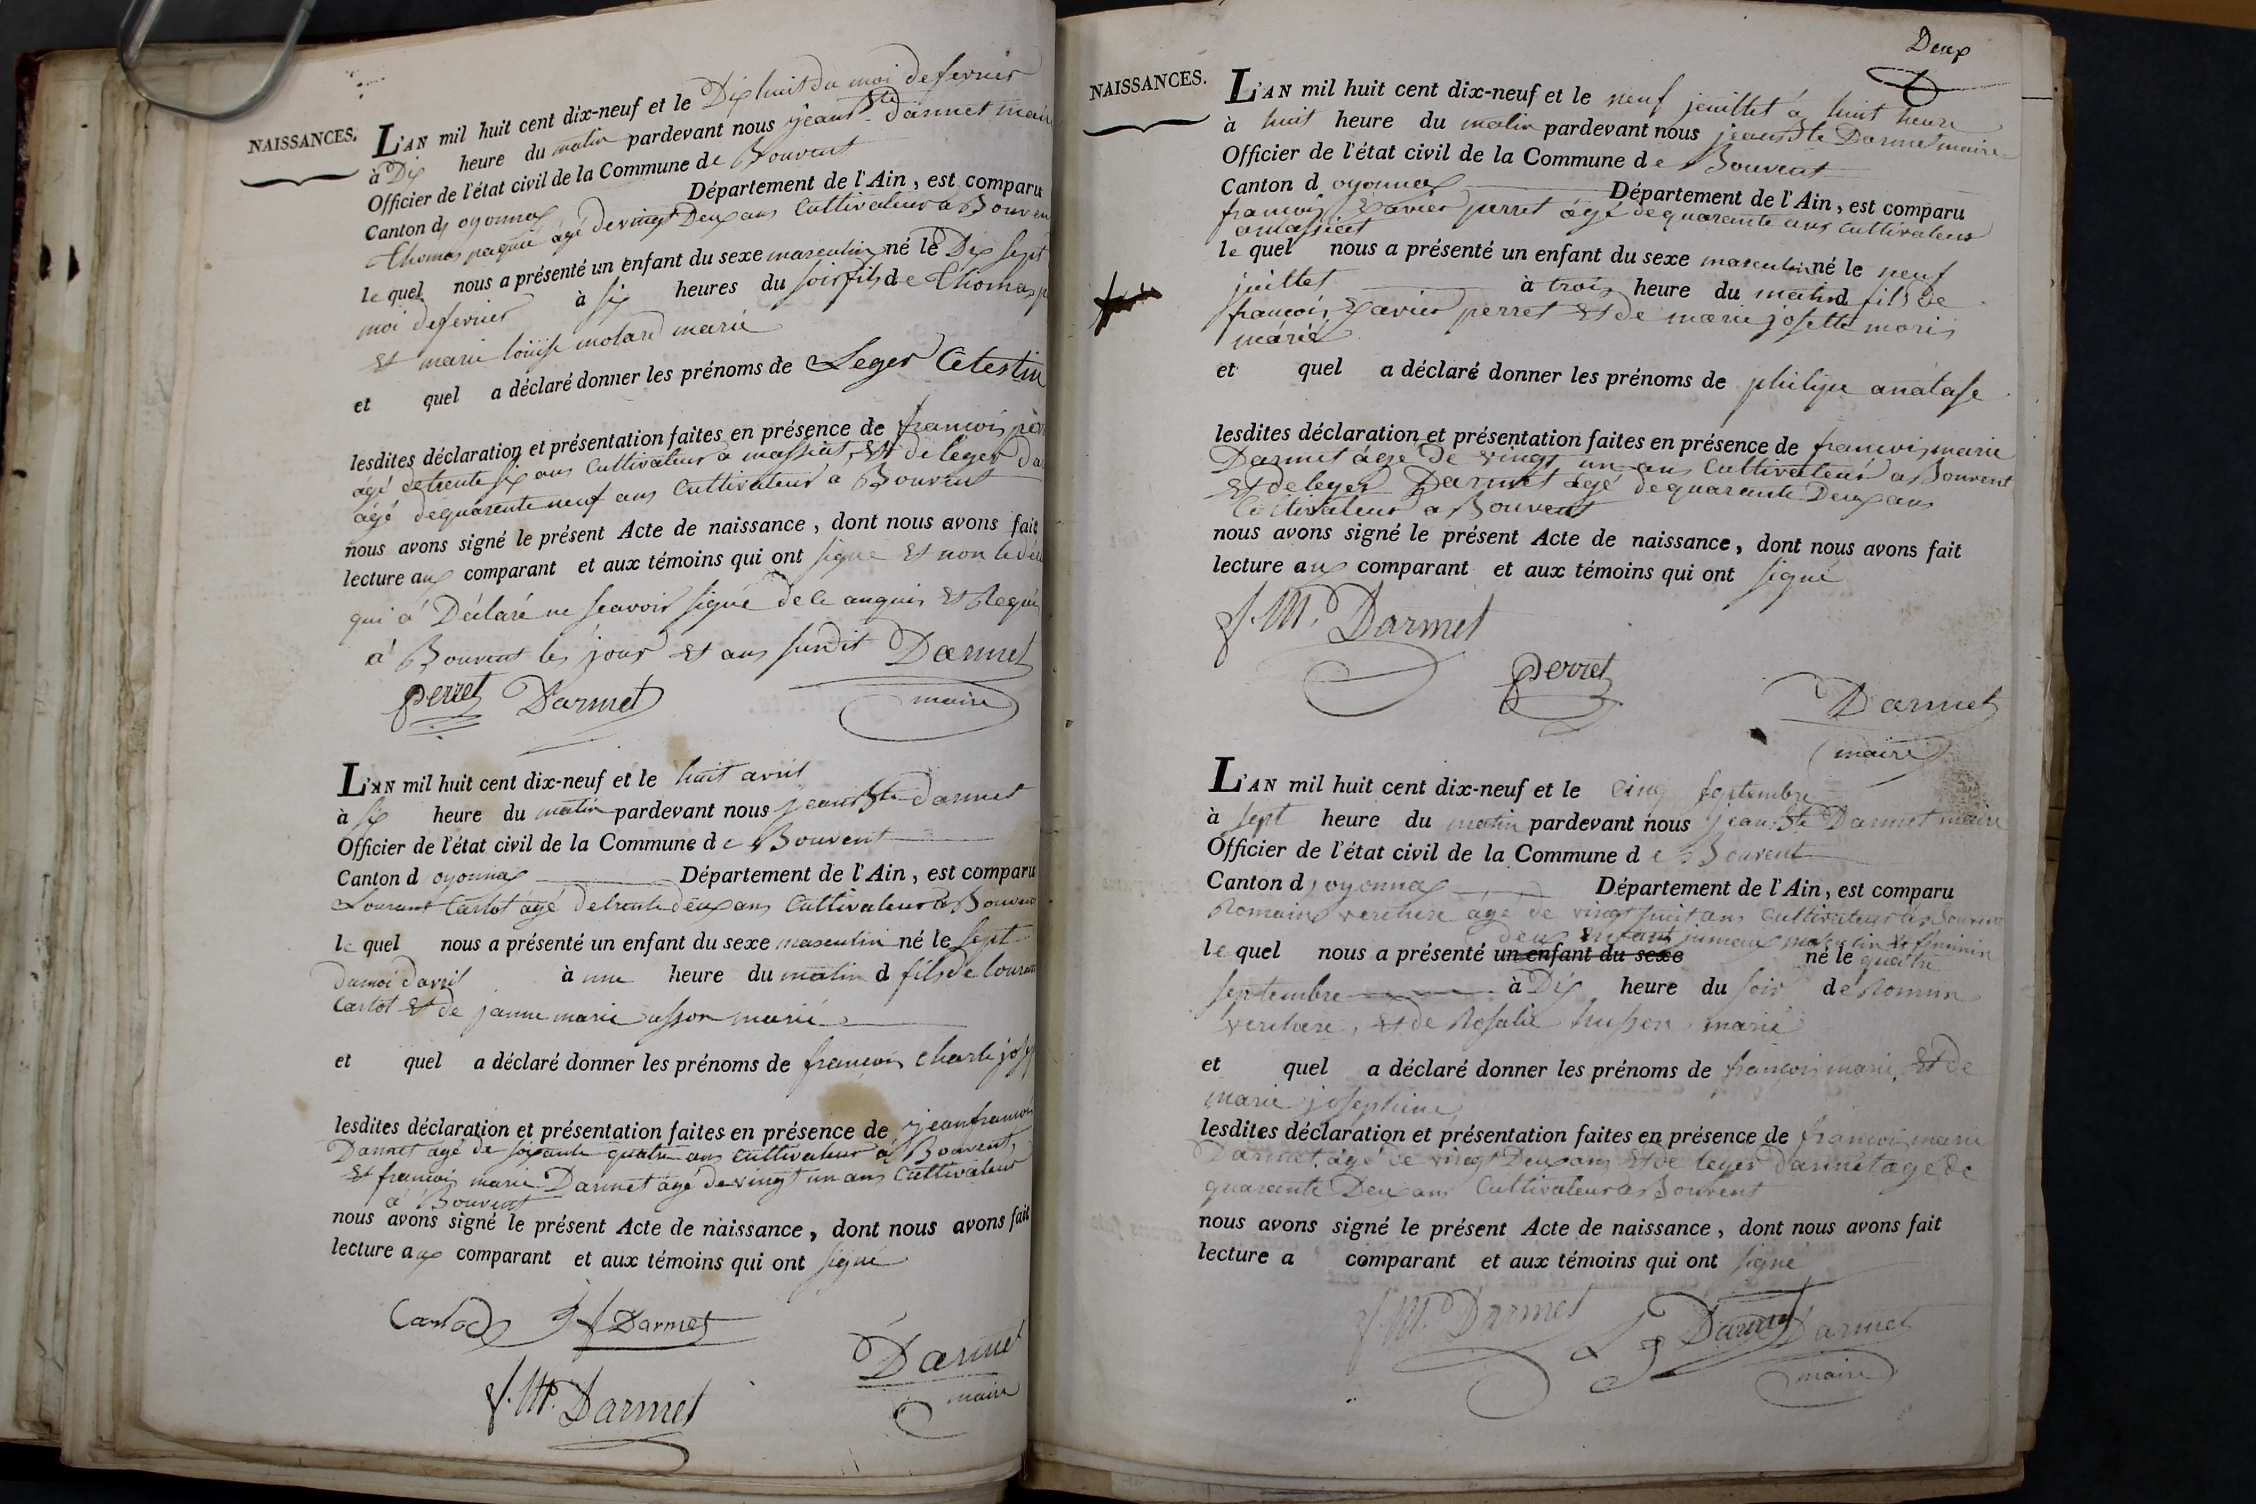 NAISSANCES.
L'AN mil huit cent dix-neuf et le Dixhuit du moi de fevrier
à Dix heure du matin pardevant nous jean Bte Darmet maire
Officier de l'état civil de la Commune de Bouvent
Canton d oyonnax Département de l'Ain, est comparu
Thomas paquié âgé de vingt Deux ans Cultivateur a Bouvent
le quel nous a présenté un enfant du sexe masculin né le Dix sept
moi de fevrier à six heures du soir fils de Thomas
et marie louise molard marié
et quel a déclaré donner les prénoms de Leger Celestin
lesdites déclaration et présentation faites en présence de francois
âgé de trente six ans Cultivateur a massiat, et de leger
âgé de quarente neuf ans Cultivateur a Bouvent
nous avons signé le présent Acte de naissance, dont nous avons fait
lecture aux comparant et aux témoins qui ont signé et non le
qui a Déclaré ne scavoir signé de ce enquis et Requis
a Bouvent les jour et ans susdit Darmet
perret Darmet maire
L'AN mil huit cent dix-neuf et le huit avril
à six heure du matin pardevant nous jean Bte Darmet
Officier de l'état civil de la Commune de Bouvent
Canton d oyonnax Département de l'Ain, est comparu
Lourant Carlot âgé de trente deux ans Cultivateur a Bouvent
le quel nous a présenté un enfant du sexe masculin né le sept
du moi d'avril à une heure du matin d fils de lourant
Carlot et de janne marie usson marié
et quel a déclaré donner les prénoms de francois charle
lesdites déclaration et présentation faites en présence de jean francois
Darmet agé de soixante quatre ans cultivateur a Bouvent,
et francois marie Darmet âgé de vingt un ans Cultivateur
a Bouvent
nous avons signé le présent Acte de naissance, dont nous avons fait
lecture aux comparant et aux témoins qui ont signé
Carlod Jf Darmet
f. M. Darmet Darmet
maire
Deux
NAISSANCES.
L'AN mil huit cent dix-neuf et le neuf jeuillet a huit heure
à huit heure du matin pardevant nous jean Bte Darmet maire
Officier de l'état civil de la Commune de Bouvent
Canton d oyonnax Département de l'Ain, est comparu
francois Xavier perret âgé de quarante ans cultivateur
a massiat
le quel nous a présenté un enfant du sexe masculin né le neuf
juillet à trois heure du matin d fils de
francois Xavier perret et de marie josette moris
marié
et quel a déclaré donner les prénoms de philipe anatase
lesdites déclaration et présentation faites en présence de francois marie
Darmet âgé de vingt un ans Cultivateur a Bouvent
et de leger Darmet âgé de quarante Deux ans
Cultivateur a Bouvent
nous avons signé le présent Acte de naissance, dont nous avons fait
lecture aux comparant et aux témoins qui ont signé
f. M. Darmet
perret
Darmet
maire
L'AN mil huit cent dix-neuf et le cinq septembre
à sept heure du matin pardevant nous jean Bte Darmet maire
Officier de l'état civil de la Commune de Bouvent
Canton d oyonnax Département de l'Ain, est comparu
Romain verchere âgé de vingt huit ans Cultivateur a Bouvent
deux enfant jumeaux masculin et feminin
le quel nous a présenté un enfant du sexe né le quatre
septembre à Dix heure du soir de Romain
verchere, et de Rosalie husson marié
et quel a déclaré donner les prénoms de francois marie, et de
marie josephine
lesdites déclaration et présentation faites en présence de francois marie
Darmet âgé de vingt Deux ans et de leger Darmet agé de
quarante Deux ans Cultivateur a Bouvent
nous avons signé le présent Acte de naissance, dont nous avons fait
lecture a comparant et aux témoins qui ont signé
f. M. Darmet Lg Darmet Darmet
maire